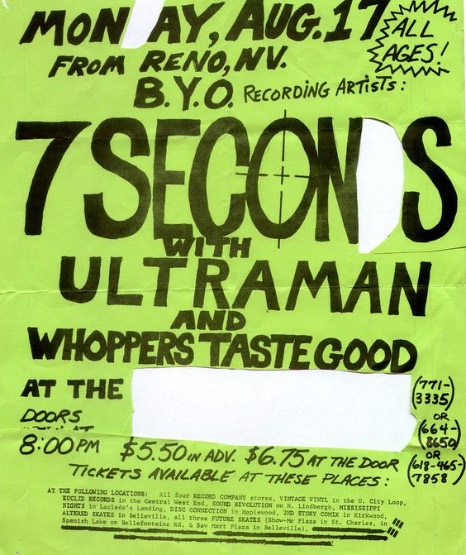 MON AY, AUG. 17
ALL AGES!
FROM RENO, NV.
B.Y.O. RECORDING ARTISTS:
7 SECON S
WITH
ULTRAMAN
AND
WHOPPERS TASTE GOOD
AT THE
(771-3335)
OR
(664-8650)
OR
(618-465-7858)
DOORS
8:00 PM $5.50 IN ADV. $6.75 AT THE DOOR
TICKETS AVAILABLE AT THESE PLACES:
AT THE FOLLOWING LOCATIONS: All four RECORD COMPANY stores, VINTAGE VINYL in the U. City Loop,
EUCLID RECORDS in the Central West End, SOUND REVOLUTION on N. Lindbergh, MISSISSIPPI
NIGHTS in Laclede's Landing, DISC CONNECTION in Maplewood, 2ND STORY COMIX in Kirkwood,
ALTERED SKATES in Belleville, all three FUTURE SKATES (Show-Me Plaza in St. Charles, in
Spanish Lake on Bellefontaine Rd. & Baw Mart Plaza in Belleville).